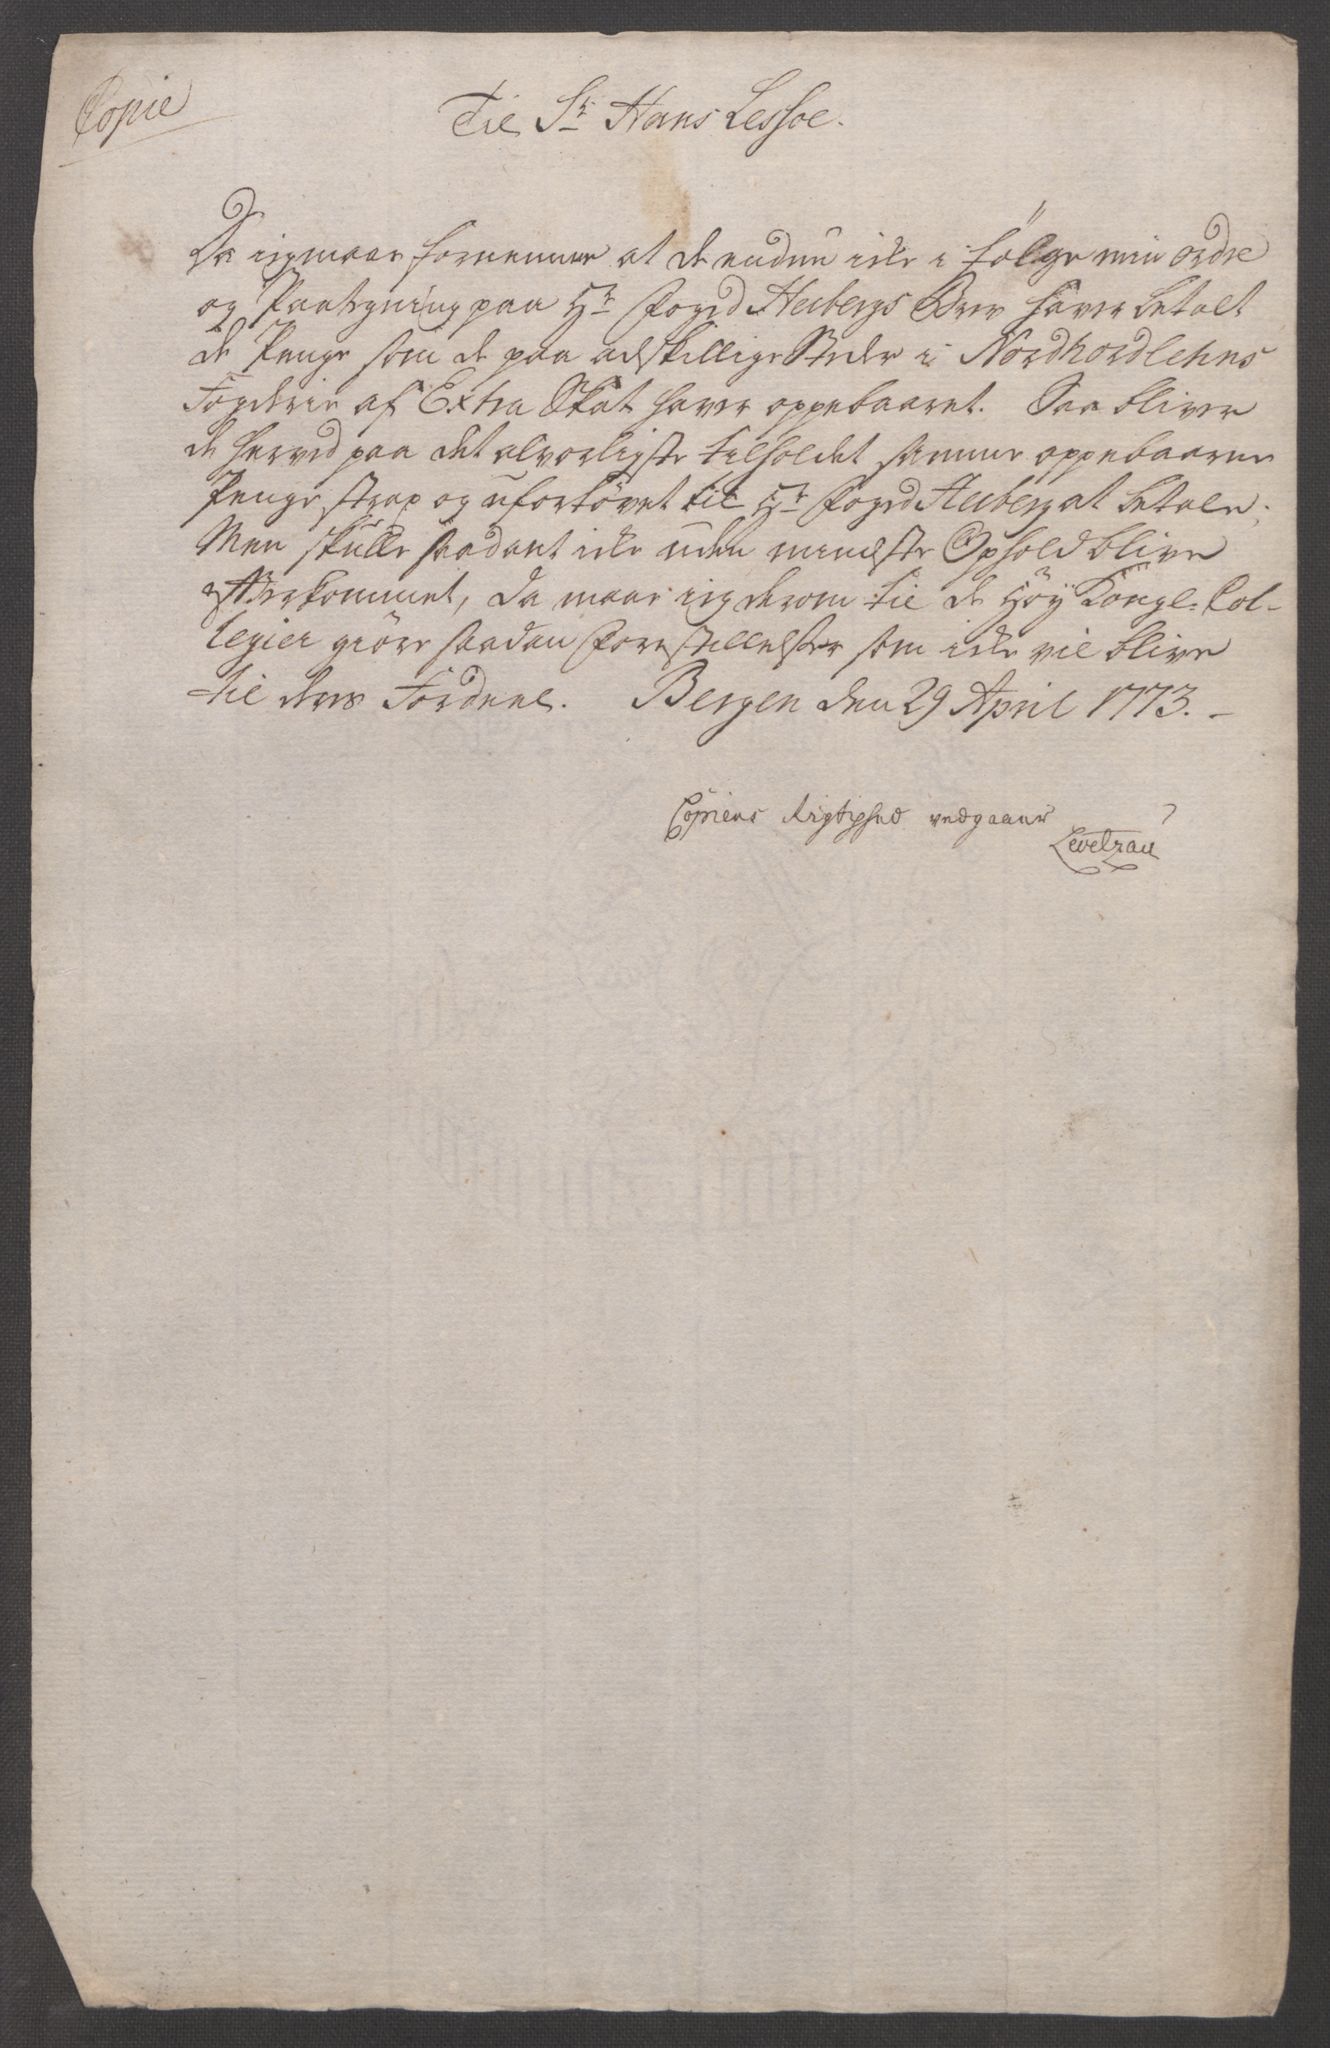 Copie
Til Sr Hans Lessøe.
Da ieg maae fornemme at de endnu icke i følge min ordre
og Paategning paa Hr Foged Heibergs Brev haver betalt
de Penge som de paa adskillige Steder i Nordhordlehns
Fogderie af Extra Skat haver oppebaaret. Saa bliver
de herved paa det alvorligste tilholdet samme oppebaarne
Penge strax og ufortøvet til Hr Foged Heiberg at betale,
Men skulle saadant icke uden mindste Ophold blive
efterkommet, da maae ieg derom til de Høy Kongl. Col-
legier giøre saadan Forestillelse som icke vil blive
til deres Fordeel. Bergen den 29 April 1773. -
Copiens Rigtighed vedgaaer
Levetzau